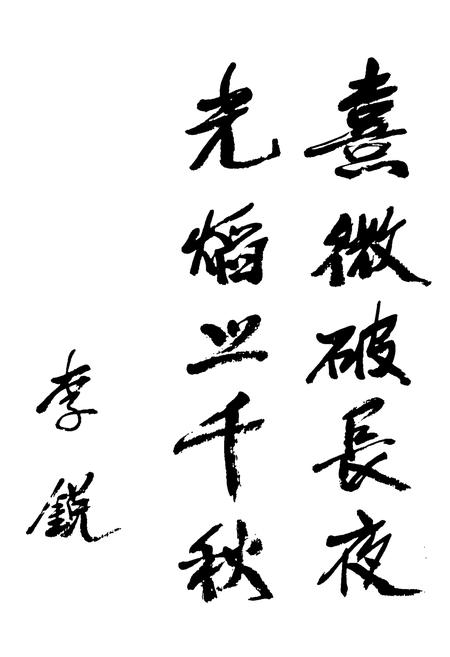 熹微破長夜
光熖上千秋
李銳